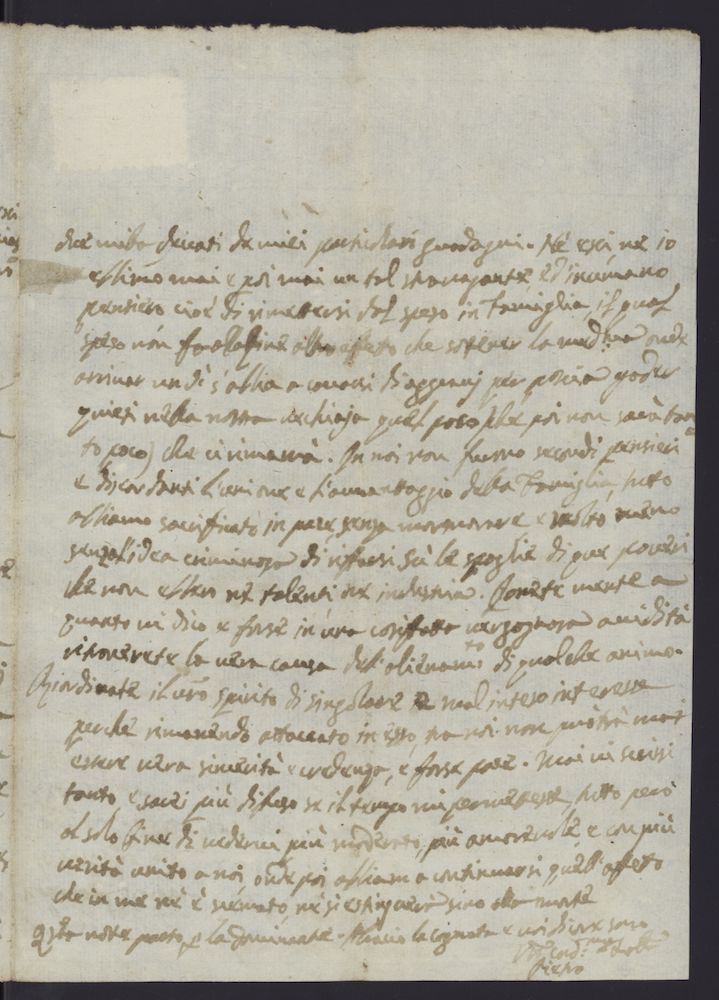 die mila ducati de miei particolari guadagni. Nè essi ne io
ebbimo mai e poi mai un tal stravagante ed inumano
pensiero cioè di rimettersi del speso in famiglia, il qual
speso non fà altro effetto che sostener la onde
arrivar un dì s'abbia a per poscia goder
quieti nella nostra vechiaja quel poco (che poi non sarà tan
to poco) che ci rimarrà. In noi non furono secondi pensieri
e discordanti l'unione e l'avantaggio della famiglia, tutto
abbiamo sacrificato in pace, senza mormorare e molto meno
senza l'idea criminosa di rifforsi sù le spoglie di que poveri
che non ebbero nè talenti nè industria. Ponete mente a
quanto vi dico e forse in una cosiffatta vergognosa avidità
ritroverete la vera causa dell'alienamto di qualche animo.
Riordinate il vro spirito di singolare e mal inteso interesse
perchè rimanendo attaccato in esso, tra noi non potrà mai
essere vera sincerità e credenza, e forse pace. Mai vi scrissi
tanto, e sarei più diffuso se il tempo mi permettesse, tutto però
al solo fine di vedervi più moderato, più amorevole e con più
verità unito a noi, onde poi abbiam a continuarsi quell'affetto
che in me nè è scemato, nè si estinguerà sino alla morte
Qta notte parto p la Dominante. Abbraccio la cognata e voi di core sono
Pietro